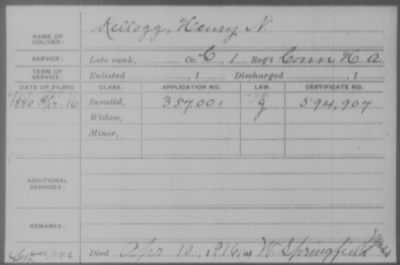 NAME OF SOLDIER: Kellogg, Henry N
SERVICE: Late rank, Co. C, 1 Reg't Conn H A
TERM OF SERVICE: Enlisted , 1 Discharged , 1
DATE OF FILING. CLASS. APPLICATION NO. LAW. CERTIFICATE NO.
1880 16 Invalid, 357,001 G 594,907
Widow,
Minor,
ADDITIONAL SERVICES:
REMARKS:
Died Apr 12, 1916, at W. Springfield Mass